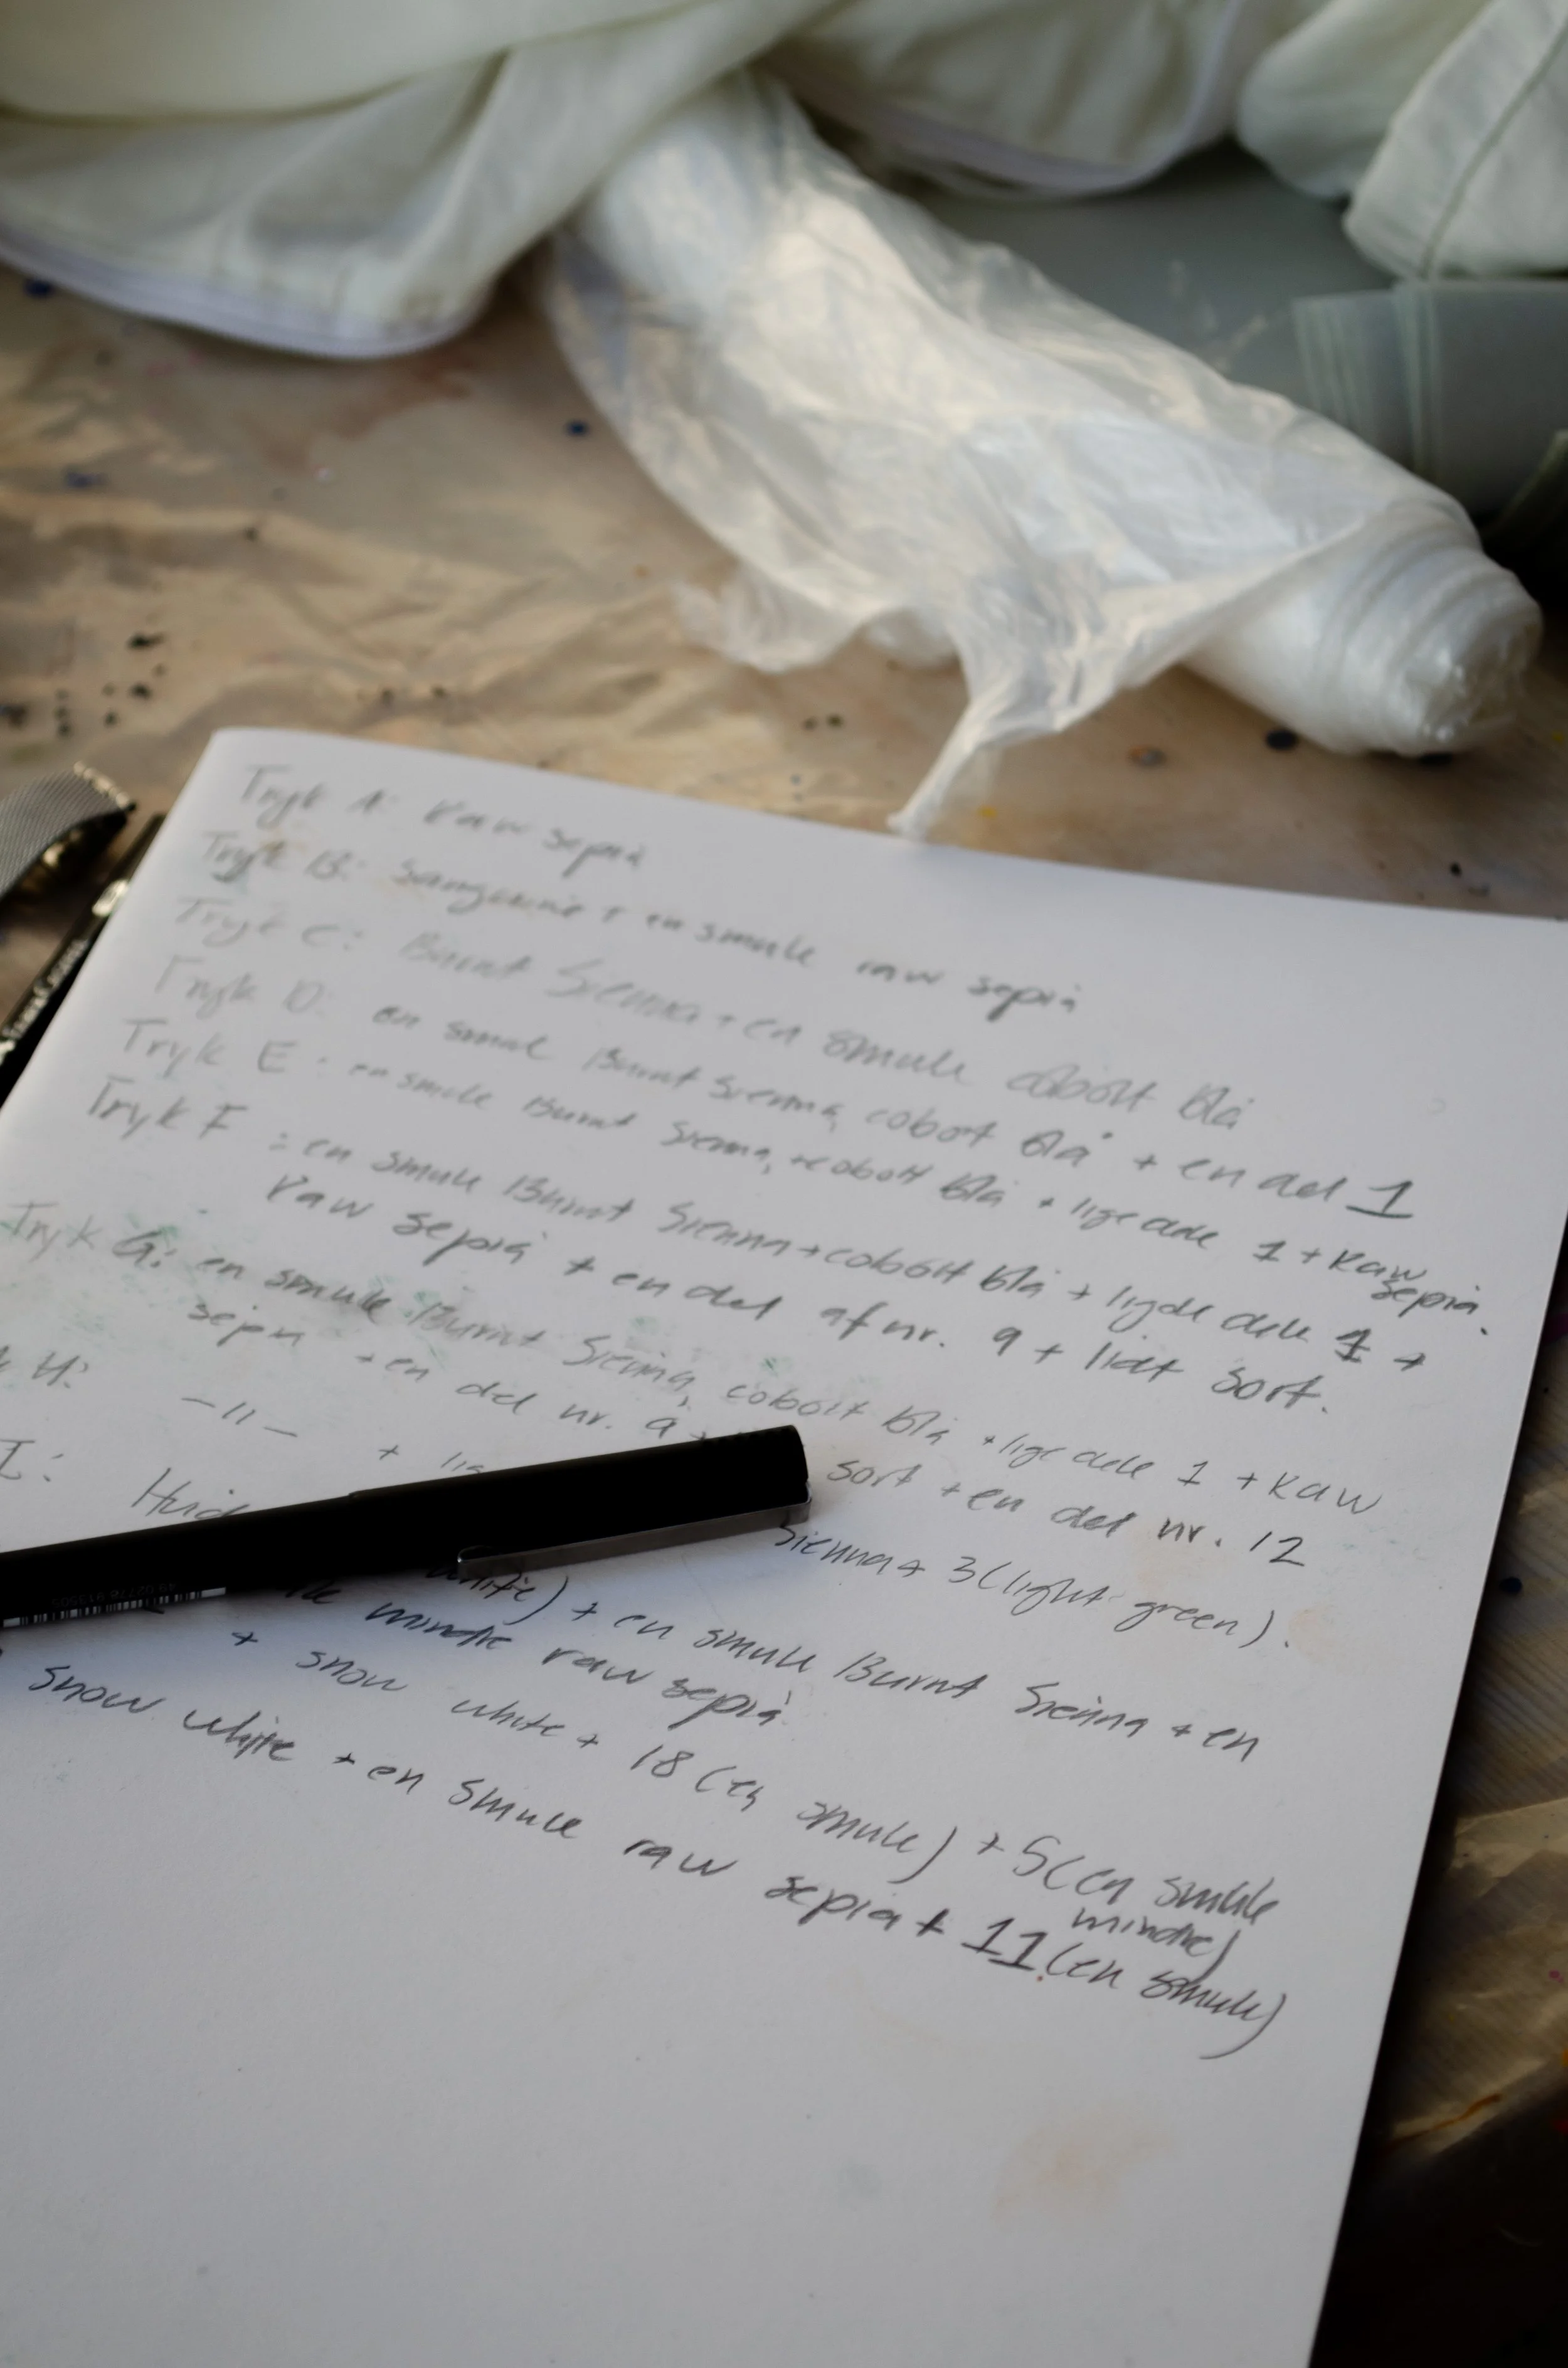 Tryk A: Raw sepia
Tryk B: Sanguine + en smule raw sepia
Tryk C: Burnt Sienna + en smule cobolt blå
Tryk D: en smul Burnt Sienna, cobolt blå + en del 1
Tryk E: en smule Burnt Sienna, + cobolt blå + lige dele 1 + Raw
sepia.
Tryk F: en smule Burnt Sienna + cobolt blå + lige dele 1 +
Raw sepia + en del af nr. 9 + lidt sort.
Tryk G: en smule Burnt Sienna, cobolt blå + lige dele 1 + Raw
+ en del nr. sort + en del nr. 12
H: -11- +
I: Sienna + 3 (light green).
white) + en smule Burnt Sienna + en
mindre raw sepia
+ snow white + 18 (en smule) + 5 (en smule
mindre)
snow white + en smule raw sepia + 11 (en smule)